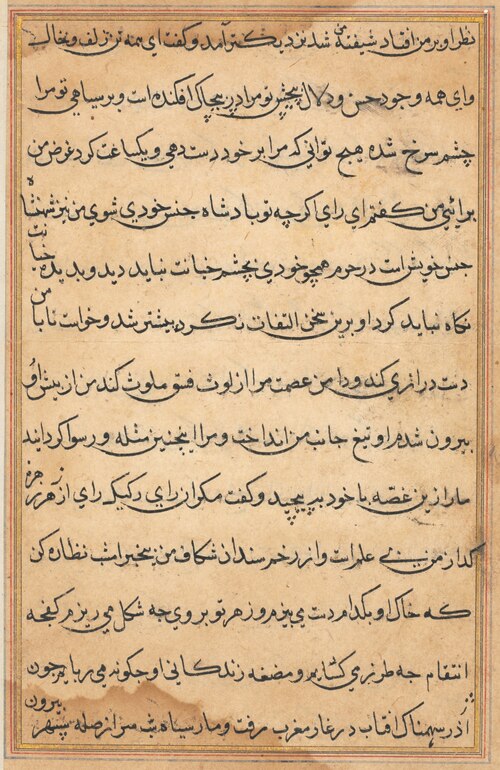 نظر او بر من افتاد شیفته من شد نزدیکتر آمد و گفت ای همه تن زلف و خال
وای همه وجود حسن و دلال بچش تو مرا در پیچاک افکنده است و بر سیاهی تو مرا
چشم سرخ شده هیچ توانی که مرا بر خود دست دهی و یکساعت کرد غرض من
برائی من کفتم ای رای اکرچه تو بادشاه جنس خودی شوی من نیز شهنشاه
جنس خویش است در حرم همچو خودی بچشم خیانت نباید دید و بدیده خیانت
نکاه نباید کرد او برین سخن التفات نکرد بیشتر شد و خواست تا با من
دست درازی کند و دامن عصمت مرا از لوث فسق ملوث کند من از پیش او
بیرون شدم او تیغ جانب من انداخت و مرا اینچنین مثله و رسوا کردانید
مار ازین غصه با خود بپیچید و کفت مکوان رای رکیک رای از زهر زهره
کداز من بی علم است و از زخم سندان شکاف من بیخبر است نظاره کن
که خاک او بکدام دست می بیزم و زهر تو بر وی چه شکل می ریزم کفچه
انتقام چه طرز می کشایم و مضغه زندکانی او چکونه می ربایم چون
اژدر سهمناک افتاب در غار مغرب رفت و مار سیاه شب سر از صله سپهر بیرون